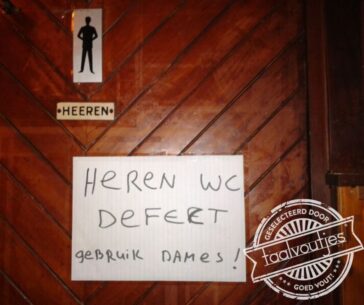 •HEEREN•
HEREN WC
DEFECT
GEBRUIK DAMES!
GESELECTEERD DOOR
taalvoutjes
GOED VOUT!